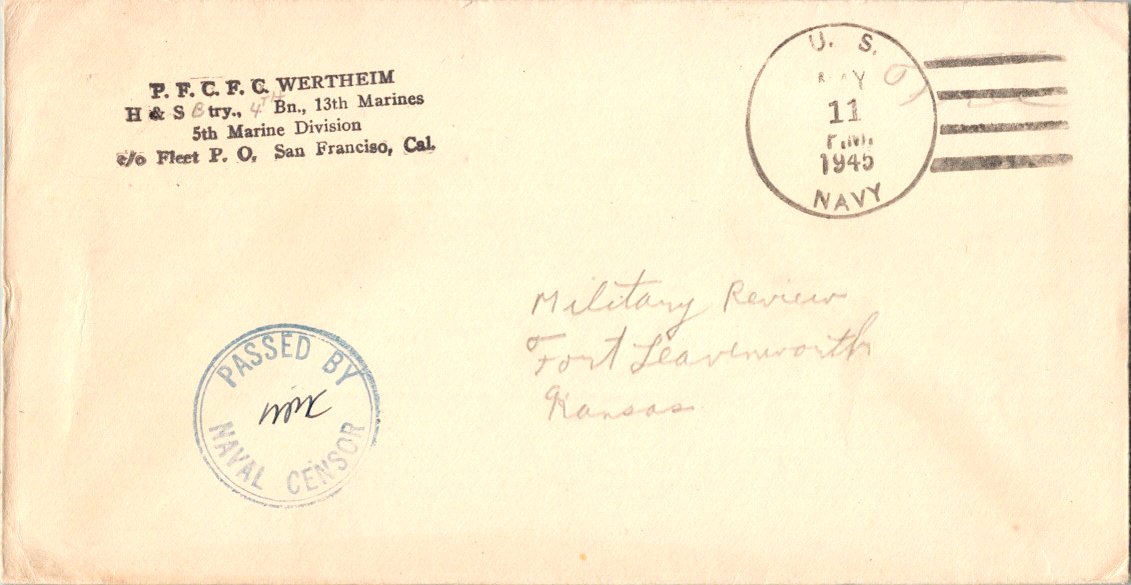 P. F. C. F. C. WERTHEIM
H & S Btry., 4TH Bn., 13th Marines
5th Marine Division
c/o Fleet P. O. San Franciso, Cal.
U. S.
MAY
11
P.M.
1945
NAVY
Military Review
Fort Leavenworth
Kansas
PASSED BY
NAVAL CENSOR